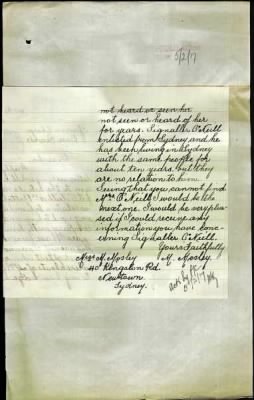 5/2/17
not heard or seen her
not seen or heard of her
for years. Signaller O'Neill
enlisted from Sydney and he
has been living in Sydney
with the same people for
about ten years but they
are no relation to him.
Seeing that you cannot find
Mrs O'Neill I would be the
next one. I would be very plea-
sed if I could receive any
information you have con-
cerning Signaller O'Neill.
Yours Faithfully
Mrs M. Mosley M. Mosley.
40 Kengston Rd.
Newtown.
Sydney.